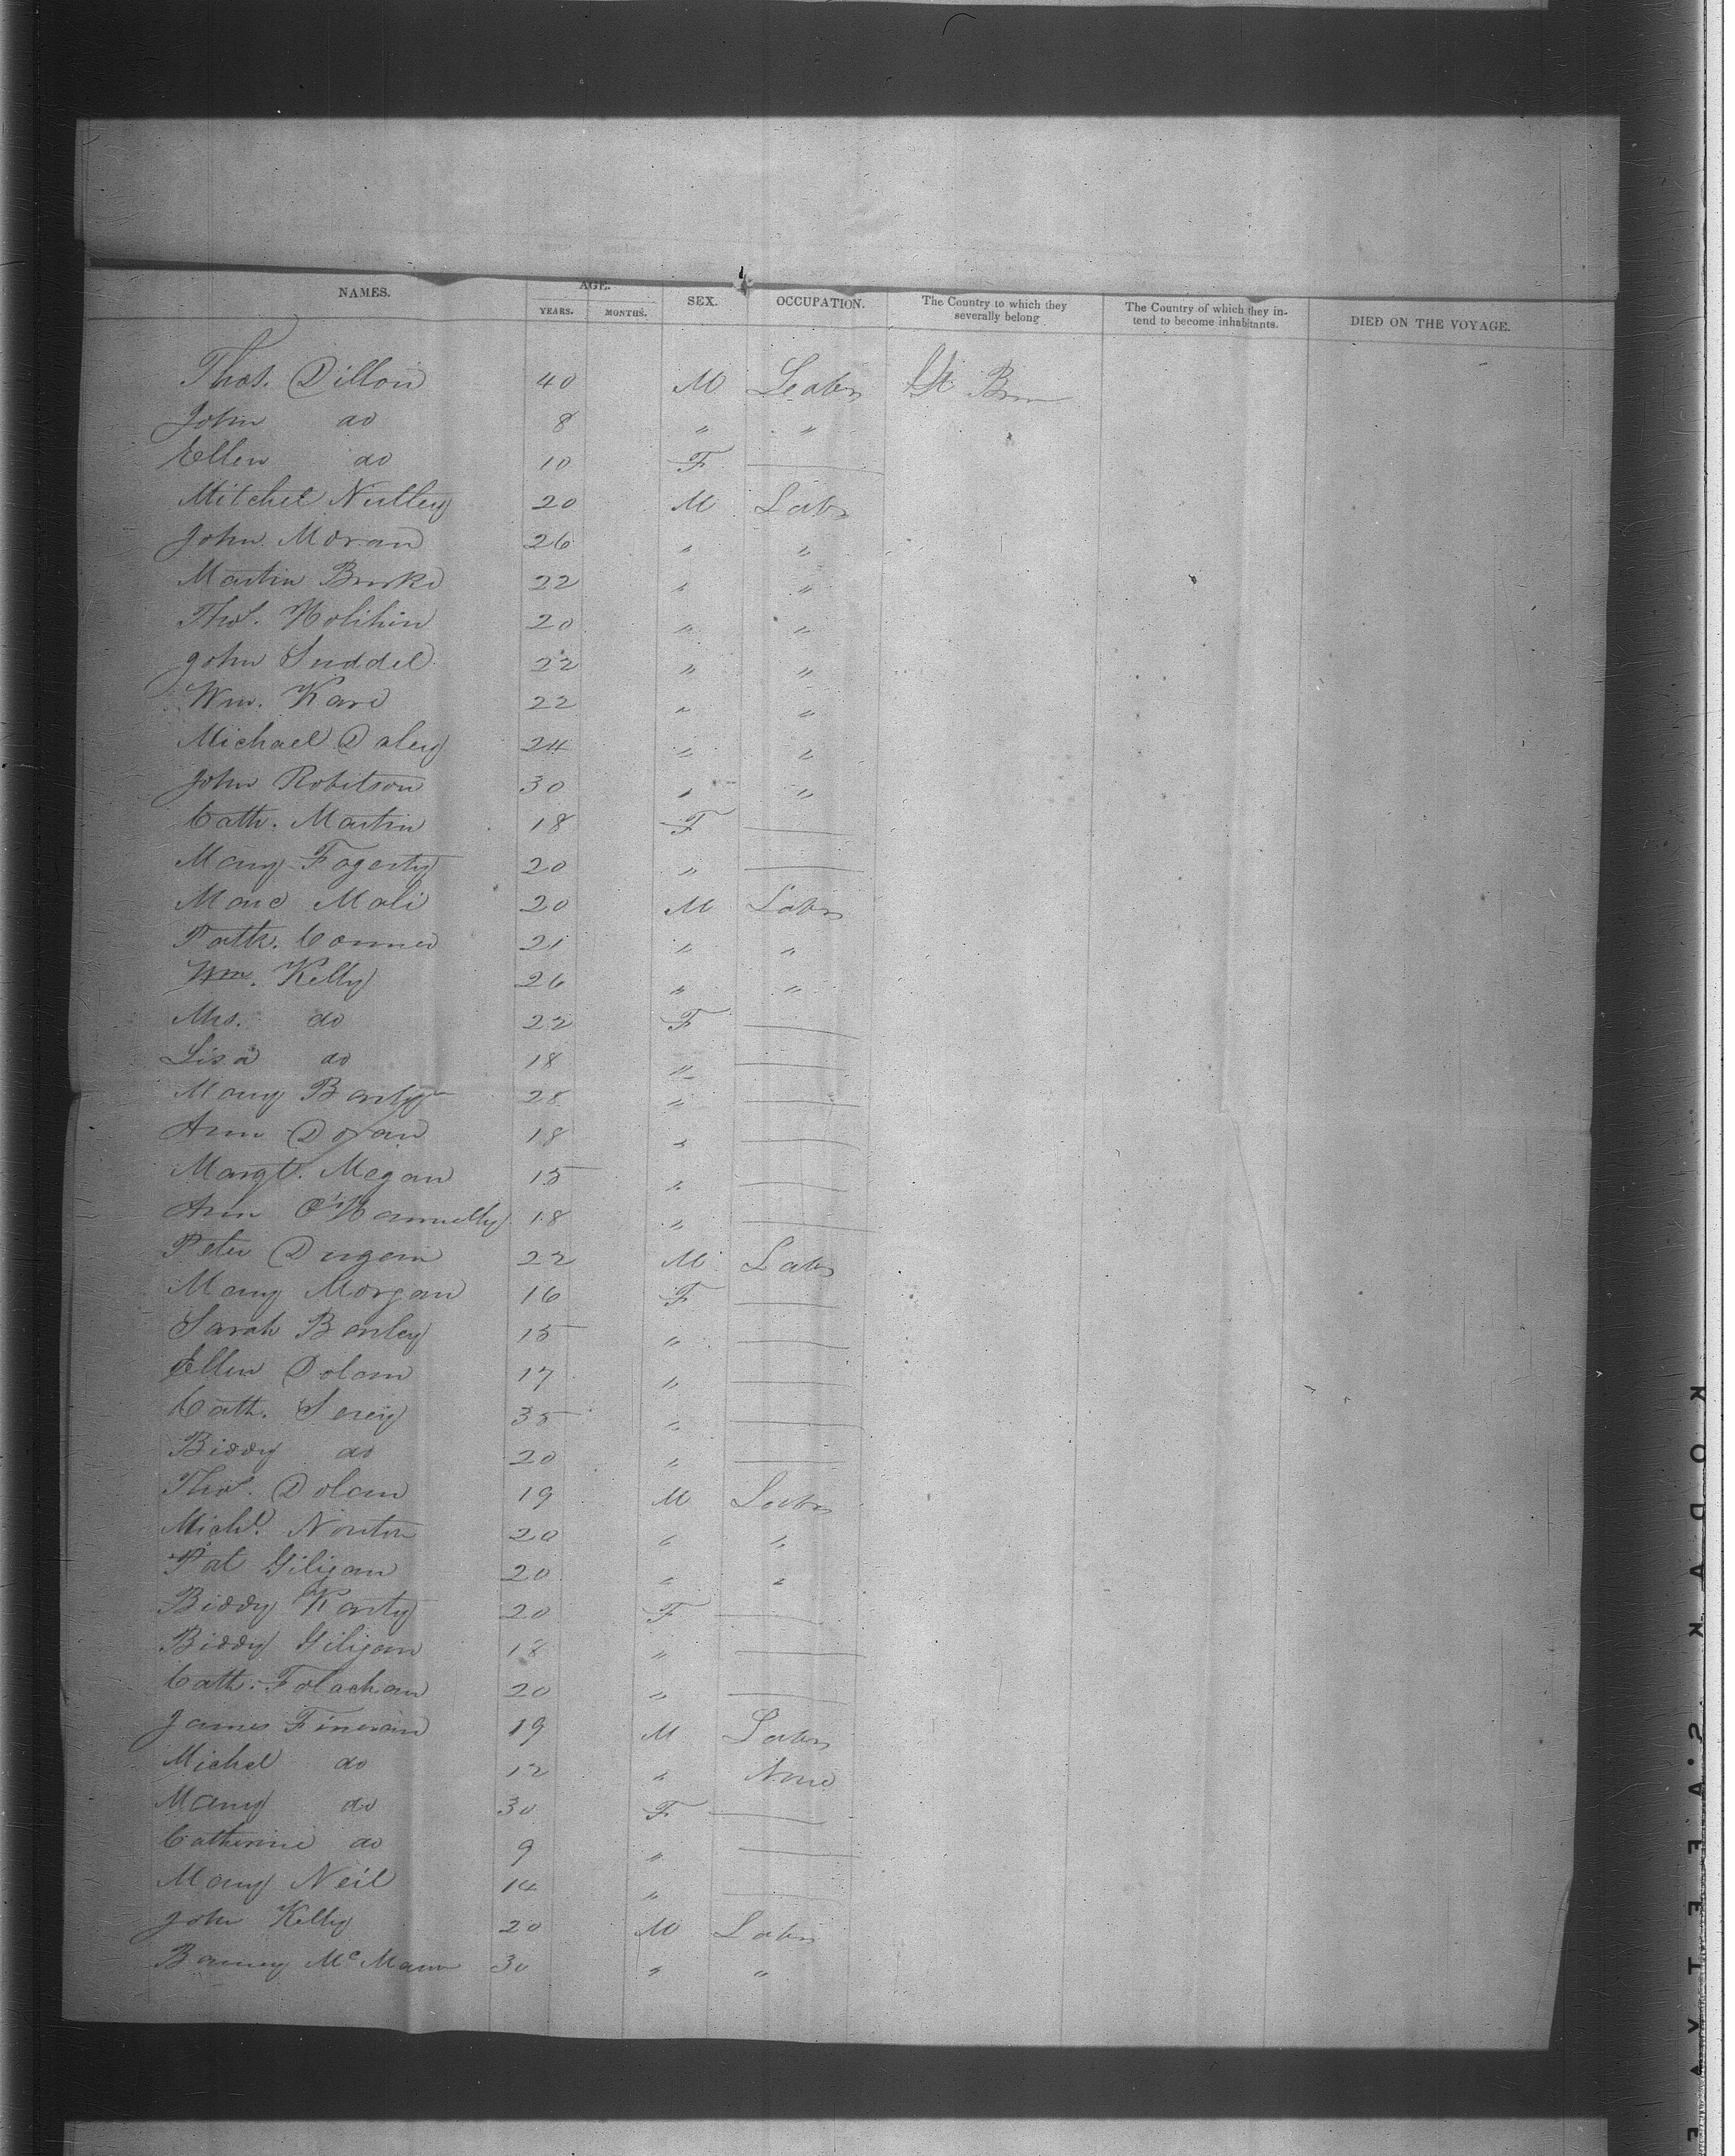 NAMES. AGE. SEX. OCCUPATION. The Country to which they severally belong The Country of which they intend to become inhabitants. DIED ON THE VOYAGE.
YEARS. MONTHS.
Thos. Dillon 40 M Labr Gt Brn
John do 8 " "
Ellen do 10 F
Mitchel Nulley 20 M Labr
John Moran 26 " "
Martin Burke 22 " "
Thos. Holihin 20 " "
John Suddel 22 " "
Wm. Kare 22 " "
Michael Daley 24 " "
John Robitson 30 " "
Cath. Martin 18 F
Mary Fogerty 20 "
Marc Mali 20 M Labr
Patk. Conner 21 " "
Wm. Kelly 26 " "
Mrs. do 22 F
Lisa do 18 "
Mary 28 "
Ann Dolan 18 "
Margt. Megan 15 "
Ann 18 "
Peter Dugan 22 M Labr
Mary Morgan 16 F
Sarah Banley 15 "
Ellen Dolan 17 "
Cath. 35 "
Biddy do 20 "
Thos. Dolan 19 M Labr
Michl. Norton 20 " "
Pat Giligan 20 " "
Biddy Karty 20 F
Biddy Giligan 18 "
Cath. Folachan 20 "
James Finewan 19 M Labr
Michel do 12 " None
Mary do 30 F
Catherine do 9 "
Mary Neil 14 "
John Kelly 20 M Labr
Barney McMann 30 " "
KODAK S.'A F E T Y